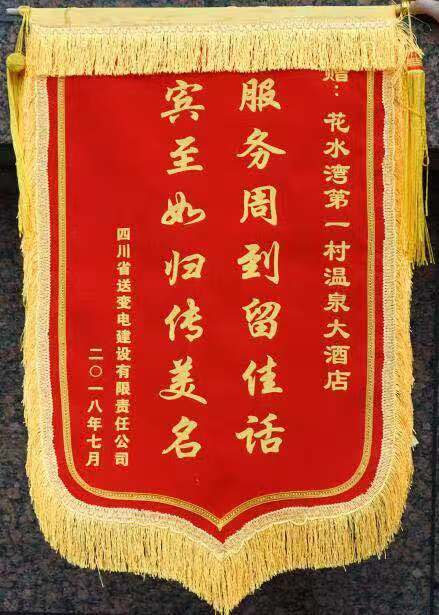 赠：花水湾第一村温泉大酒店
服务周到留佳话
宾至如归传美名
四川省送变电建设有限责任公司
二〇一八年七月